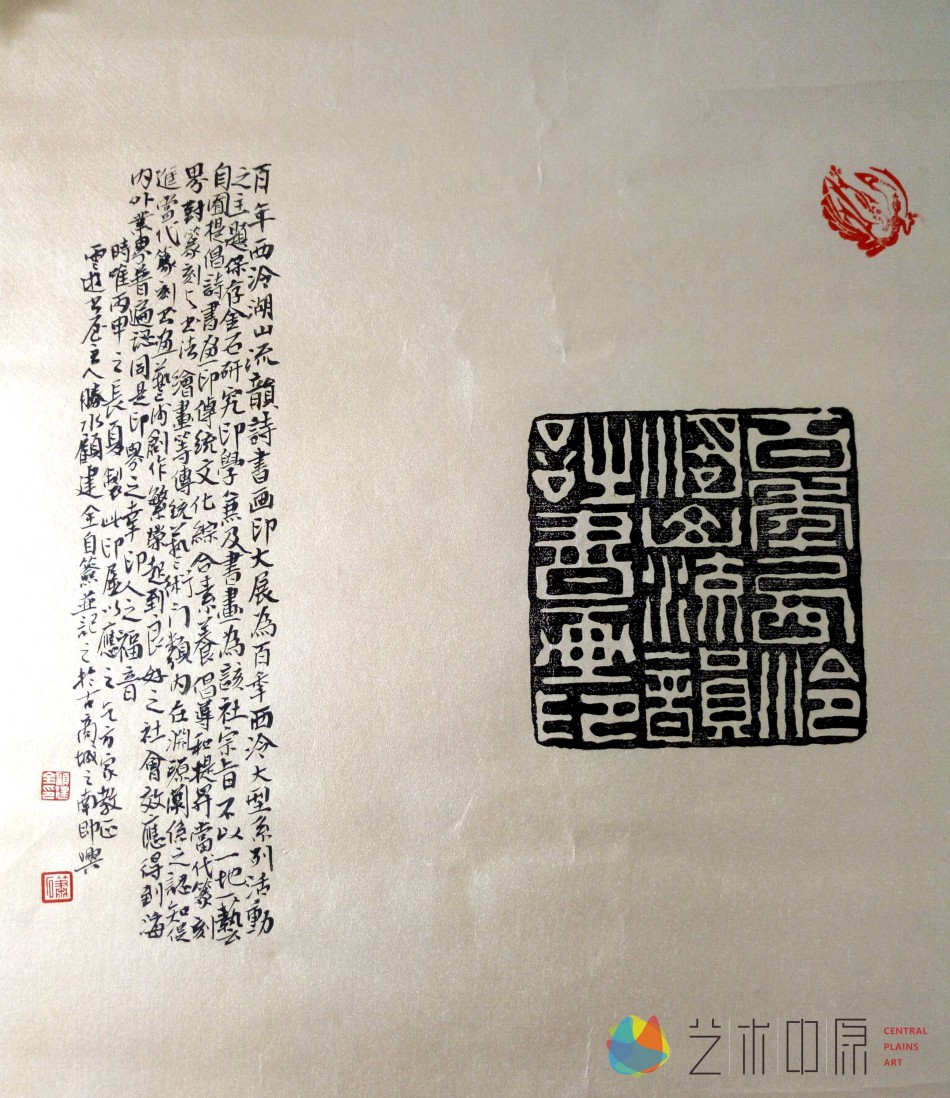 百年西泠
湖山流韻
詩書画印
百年西泠湖山流韻詩書画印大展為百年西泠大型系列活動
之主題保存金石研究印學兼及書畫為該社宗旨不以一地一藝
自囿提倡詩書画印傳統文化綜合素養倡導和提昇當代篆刻
界對篆刻書法繪畫等傳統藝術門類內在淵源關係之認知促
進當代篆刻書画藝術創作繁榮起到良好之社會效應得到海
内外業界普遍認同是印界之幸印人之福音
時唯丙申之長夏製此印屋以應之乞方家教正
雲遊书屋主人勝水顧建全自篆並記之於古商城之南即興
顧建全印
艺术中原
CENTRAL
PLAINS
ART